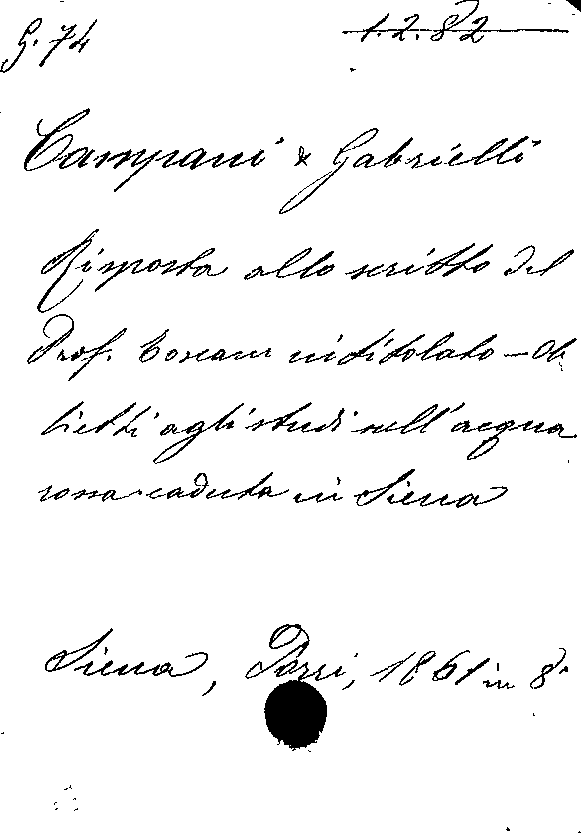 G. 74
1.2.82
Campani & Gabrielli
Risposta allo scritto del
Prof. Toscani intitolato – Ob
bietti agli studi sull'acqua
rossa caduta in Siena
Siena, Porri, 1861 in 8°